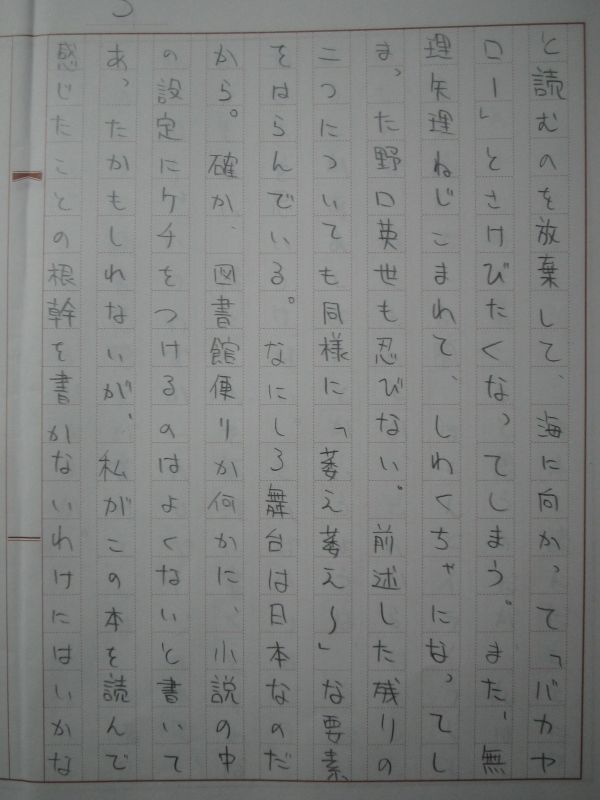 と読むのを放棄して、海に向かって「バカヤ
ロー」とさけびたくなってしまう。また、無
理矢理ねじこまれて、しわくちゃになってし
まった野口英世も忍びない。前述した残りの
二つについても同様に「萎え萎え〜」な要素
をはらんでいる。なにしろ舞台は日本なのだ
から。確か、図書館便りか何かに、小説の中
の設定にケチをつけるのはよくないと書いて
あったかもしれないが、私がこの本を読んで
感じたことの根幹を書かないわけにはいかな